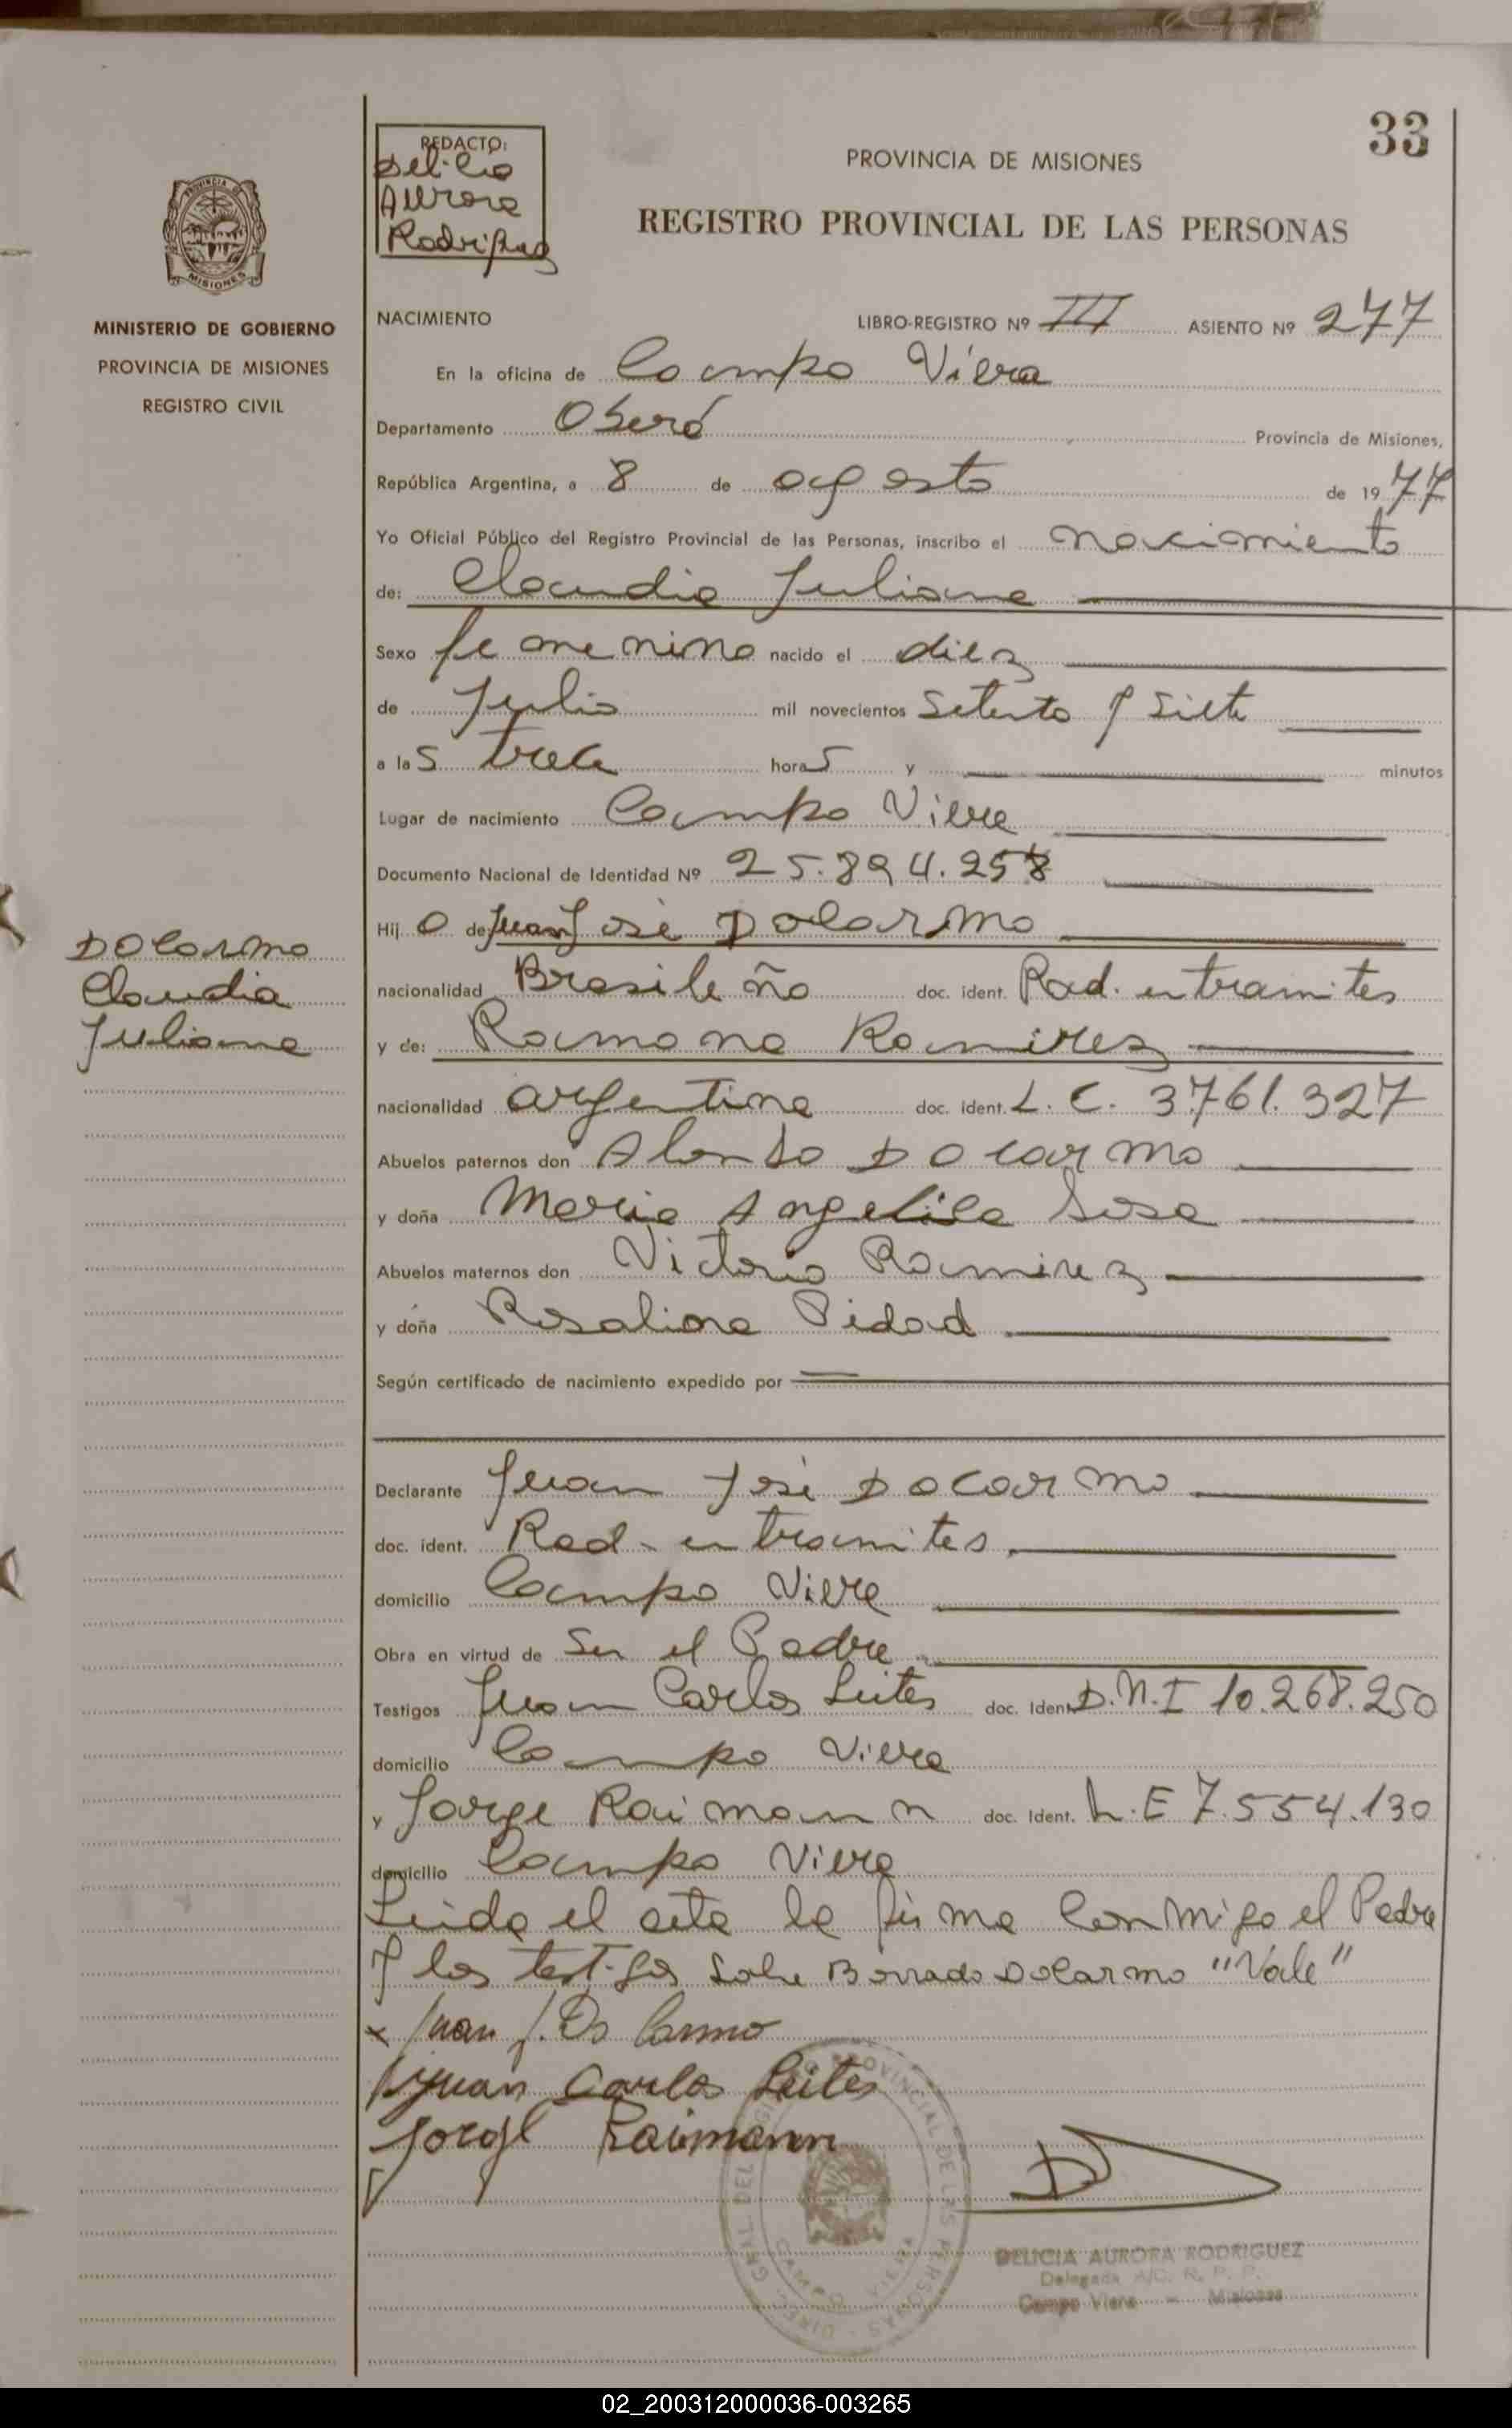 33
REDACTO:
Delicia
Aurora
Rodriguez
PROVINCIA DE MISIONES
REGISTRO PROVINCIAL DE LAS PERSONAS
MISIONES
MINISTERIO DE GOBIERNO
PROVINCIA DE MISIONES
REGISTRO CIVIL
NACIMIENTO LIBRO-REGISTRO Nº III ASIENTO Nº 277
En la oficina de Campo Viera
Departamento Oberá Provincia de Misiones,
República Argentina, a 8 de agosto de 1977
Yo Oficial Público del Registro Provincial de las Personas, inscribo el nacimiento
de: Claudia Juliana
Sexo femenino nacido el diez
de Julio mil novecientos Setenta y Siete
a las trece horas y minutos
Lugar de nacimiento Campo Viera
Documento Nacional de Identidad Nº 25.894.258
Hij o de Juan José Docarmo
Docarmo
Claudia
Juliana
nacionalidad Brasileño doc. ident. Rad. en tramites
y de: Ramona Ramirez
nacionalidad argentina doc. ident. L. C. 3.761.327
Abuelos paternos don Alonso Docarmo
y doña Maria Angelica Sosa
Abuelos maternos don Victorio Ramirez
y doña Rosalina Pidad
Según certificado de nacimiento expedido por
Declarante Juan José Docarmo
doc. ident. Rad. en tramites
domicilio Campo Viera
Obra en virtud de Ser el Padre
Testigos Juan Carlos Leites doc. Ident. D.N.I 10.268.250
domicilio Campo Viera
y Jorge Raimann doc. Ident. L.E 7.554.130
domicilio Campo Viera
Leida el acta la firma conmigo el Padre
y los testigos Sobre Borrado Docarmo "Vale"
x Juan J. Do Carmo
Juan Carlos Leites
Jorge Raimann
DIREC. GRAL. DEL REGISTRO PROVINCIAL DE LAS PERSONAS
CAMPO VIERA
DELICIA AURORA RODRIGUEZ
Delegada A/C. R. P. P.
Campo Viera - Misiones
02_200312000036-003265